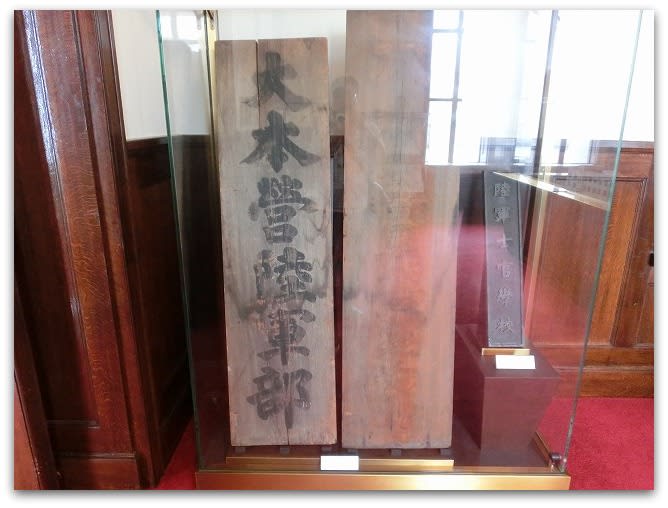 大本營陸軍部
陸軍士官學校